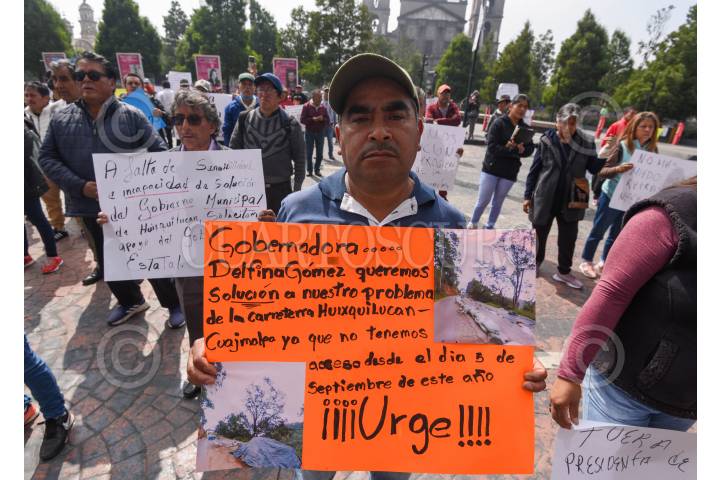 Gobernadora.....
Delfina Gómez queremos
Solución a nuestro problema
de la carretera Huixquilucan-
Cuajimalpa ya que no tenemos
acceso desde el día 5 de
Septiembre de este año
¡¡¡¡Urge!!!!
A falta
e incapacidad de solución
del Gobierno Municipal
de Huixquilucan, Solicitan
apoyo del Go
Estatal
Fuera
PRESIDENTA DE
CUARTOSCURO